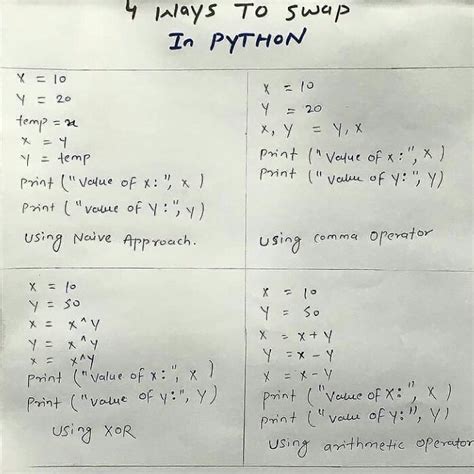 4 Ways To Swap
In PYTHON
X = 10
Y = 20
temp = x
x = y
Y = temp
Print ("Value of x:", x)
Print ("value of Y:", y)
Using Naive Approach.
X = 10
Y = 20
X, Y = Y, X
Print ("Value of x:", X)
Print ("Value of Y:", Y)
Using Comma Operator
X = 10
Y = 50
X = X^Y
Y = X^Y
X = X^Y
Print ("Value of X:", X)
Print ("Value of Y:", Y)
Using XOR
X = 10
Y = 50
X = X+Y
Y = X-Y
X = X-Y
Print ("Value of X:", X)
Print ("Value of Y:", Y)
Using arithmetic operator